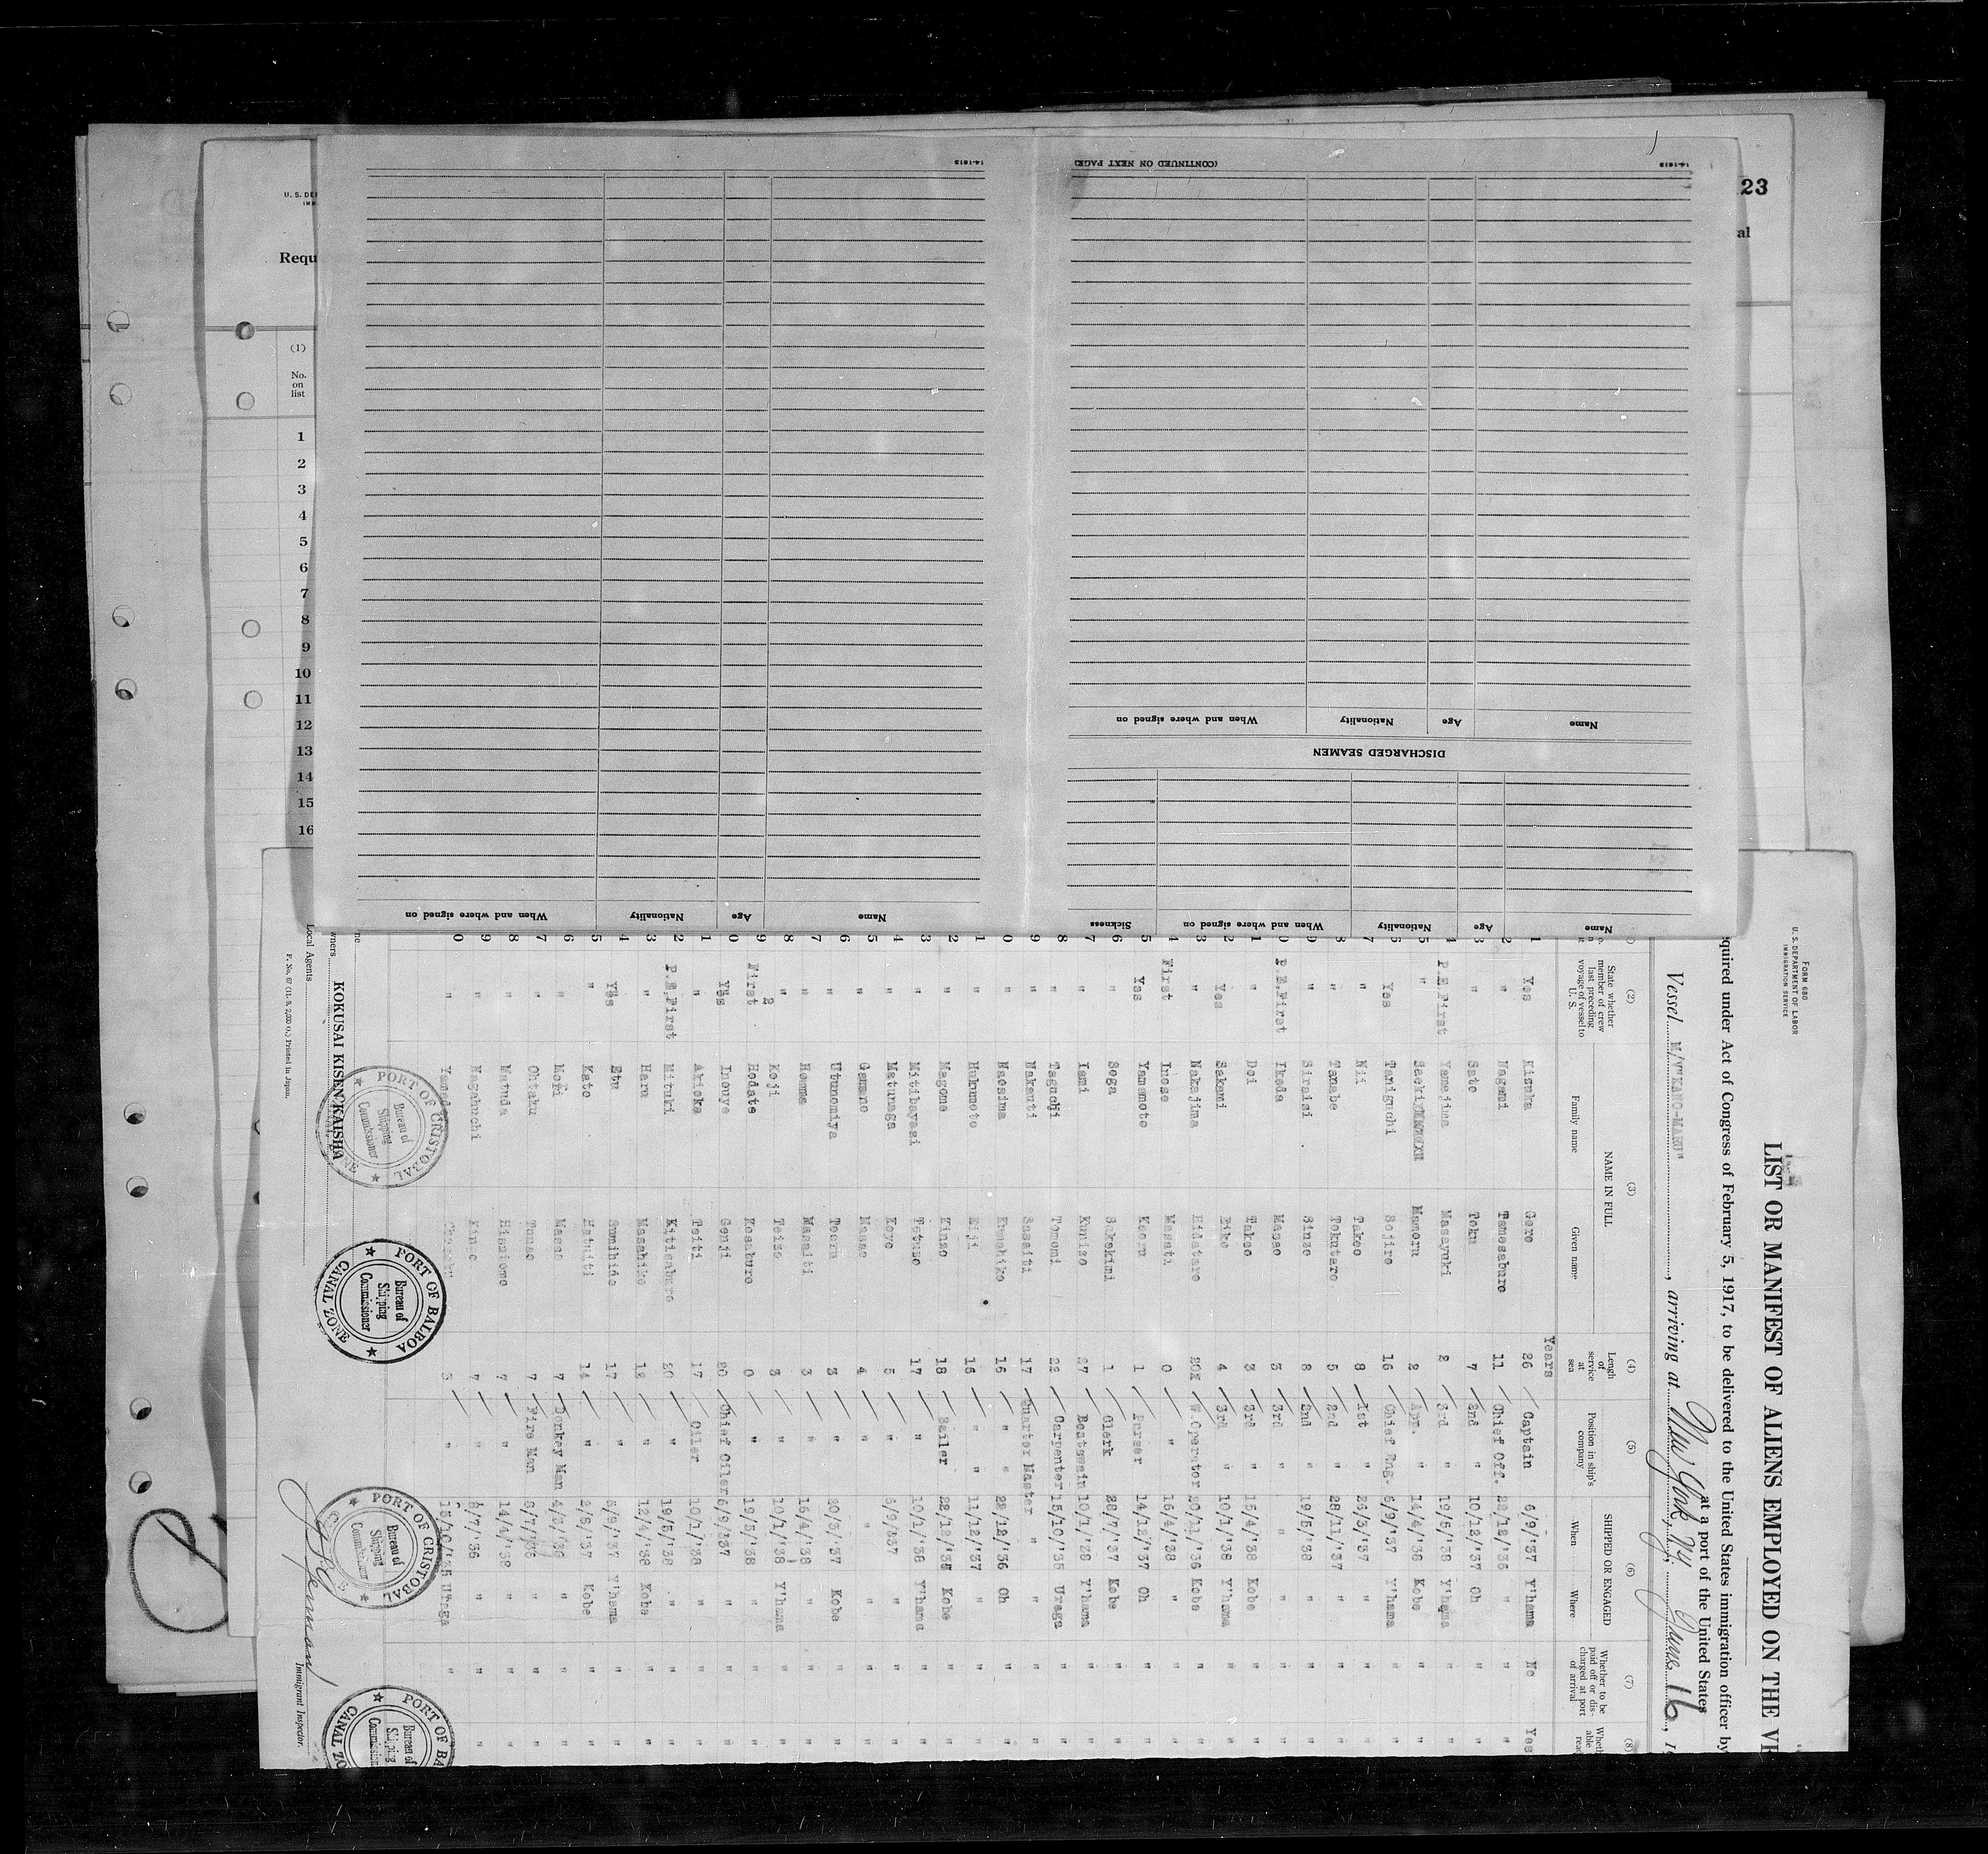 23
al
U. S. DE
Requ
(1)
No.
on
list
1
2
3
4
5
6
7
8
9
10
11
12
13
14
15
16
14-1613
(CONTINUED ON NEXT PAGE)
14-1613
Name
Age
Nationality
When and where signed on
DISCHARGED SEAMEN
Name
Age
Nationality
When and where signed on
Sickness
Name
Age
Nationality
When and where signed on
FORM 680
U. S. DEPARTMENT OF LABOR
IMMIGRATION SERVICE
LIST OR MANIFEST OF ALIENS EMPLOYED ON THE VE
quired under Act of Congress of February 5, 1917, to be delivered to the United States immigration officer by
at a port of the United States
Vessel M/V"KANO-MARU", arriving at New York NY June 16, 1
(2) (3) (4) (5) (6) (7) (8)
State whether member of crew last preceding voyage of vessel to U. S.
NAME IN FULL
Family name Given name
Length of service at sea
Position in ship's company
SHIPPED OR ENGAGED
When Where
Whether to be paid off or discharged at port of arrival
Years
1 Yes Kizuka Goro 26 Captain 6/9/'37 Y'hama No Yes
2 " Nagami Tamesaburo 11 Chief Off. 22/12/'36 " " "
" Sato Toku 7 2nd " 10/12/'37 Oh " "
P.E.First Yamajima Masayuki 2 3rd " 19/5/'38 Y'hama " "
" Saeki Mamoru 2 Apr. " 14/4/'38 Kobe " "
Yes Taniguchi Sojiro 16 Chief Eng. 6/9/'37 Y'hama " "
7 " Nii Takeo 8 1st " 26/3/'37 " " "
8 " Tanabe Tokutaro 5 2nd " 28/11/'37 " " "
9 " Siraisi Sinzo 8 2nd " 19/5/'38 " " "
0 P.E.First Ikeda Masao 3 3rd " " " " "
1 " Doi Takeo 3 3rd " 15/4/'38 Kobe " "
2 Yes Sakami Eiko 4 3rd " 10/1/'38 Y'hama " "
3 " Nakajima Hidetaro 20 W.Operator 20/11/'36 Kobe " "
4 First Inose Masati 0 " 16/4/'38 " " "
5 Yes Yamamoto Kaoru 1 Purser 14/12/'37 Oh " "
6 " Soga Sakekimi 1 Clerk 28/7/'37 Kobe " "
7 " Ismi Kunizo 27 Boatswain 10/1/'38 Y'hama " "
8 " Taguchi Tomomi 22 Carpenter 15/10/'35 Uraga " "
9 " Nakauti Sasaiti 17 Quarter Master " " " "
0 " Naosima Kumahiko 16 " " 22/12/'36 Oh " "
1 " Hukumoto Eiji 16 " " 11/12/'37 " " "
2 " Magome Kinzo 18 Sailer 22/12/'35 Kobe " "
3 " Mitibayasi Tetuzo 17 " 10/1/'38 Y'hama " "
4 " Matunaga Koyo 5 " 6/9/'37 " " "
5 " Gamano Masao 4 " " " " "
6 " Utunomiya Tooru 3 " 20/3/'37 Kobe " "
7 " Homma Masaiti 3 " 15/4/'38 " " "
8 " Koji Teizo 3 " 10/1/'38 Y'hama " "
9 First Hodate Kosaburo 0 " 19/5/'38 " " "
0 Yes Inouye Genji 20 Chief Oiler 6/9/'37 " " "
1 " Akioka Teiti 17 Oiler 10/1/'38 " " "
2 P.E.First Mituki Kitisaburo 20 " 19/5/'38 " " "
3 " Haru Masahiko 12 " 12/4/'38 Kobe " "
4 Yes Etu Sumihide 17 " 6/9/'37 Y'hama " "
5 " Kato Hatuiti 14 " 2/8/'37 Kobe " "
6 " Mori Masao 7 Donkey Man " " "
7 " Ohtaku Tamao 7 Fire Man 8/7/'36 " " "
8 " Matuda Hisatomo 7 " 14/4/'38 " " "
9 " Nagahuchi Kinzo 7 " 8/7/'36 " " "
0 " 3 " 15/10/'35 U'raga " "
wners KOKUSAI KISEN KAISHA
Local Agents
F. No. 67 (1l. 9, 2,000 O.) Printed in Japan.
Immigrant Inspector.
PORT OF CRISTOBAL
Bureau of Shipping Commissioner
PORT OF BALBOA
Bureau of Shipping Commissioner
CANAL ZONE
PORT OF CRISTOBAL
Bureau of Shipping Commissioner
PORT OF BALBOA
Bureau of Shipping Commissioner
CANAL ZO